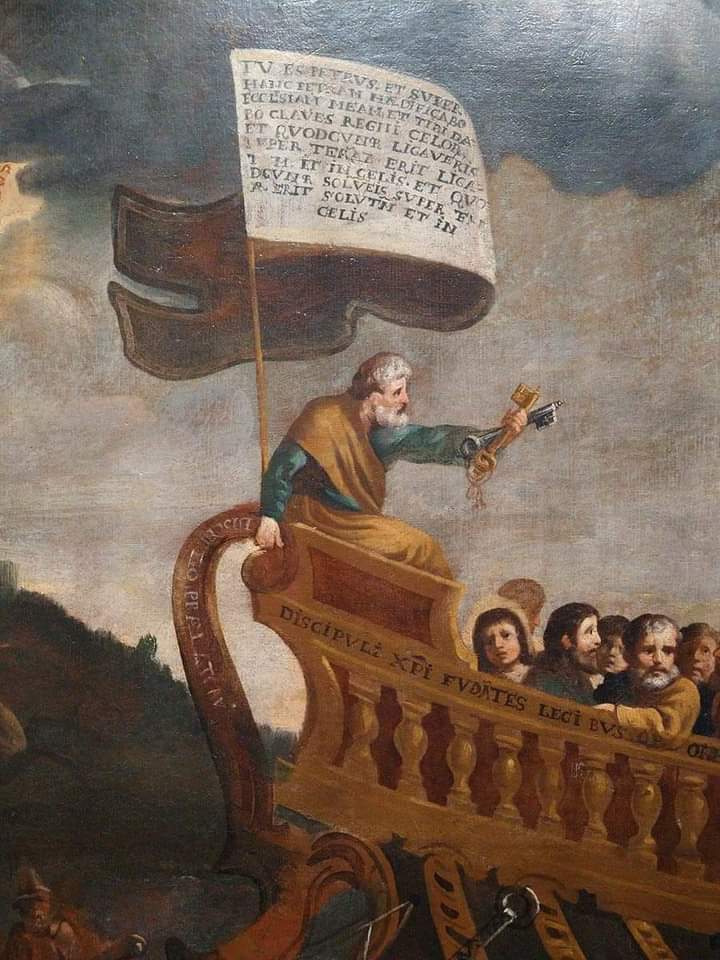 TU ES PETRUS. ET SUPER
HANC PETRAM HÆDIFICABO
ECCLESIAM MEAM ET TIBI DA
BO CLAVES REGNI CELOR
ET QUODCVNR LIGAVERIS
SVPER TERÃ ERIT LIGA
ET IN CELIS. ET QUO
DCVNR SOLVEIS SUPER TER
ERIT SOLVTM ET IN
CELIS
DISCIPVLI XPI FVDÃTES LEGI BVS